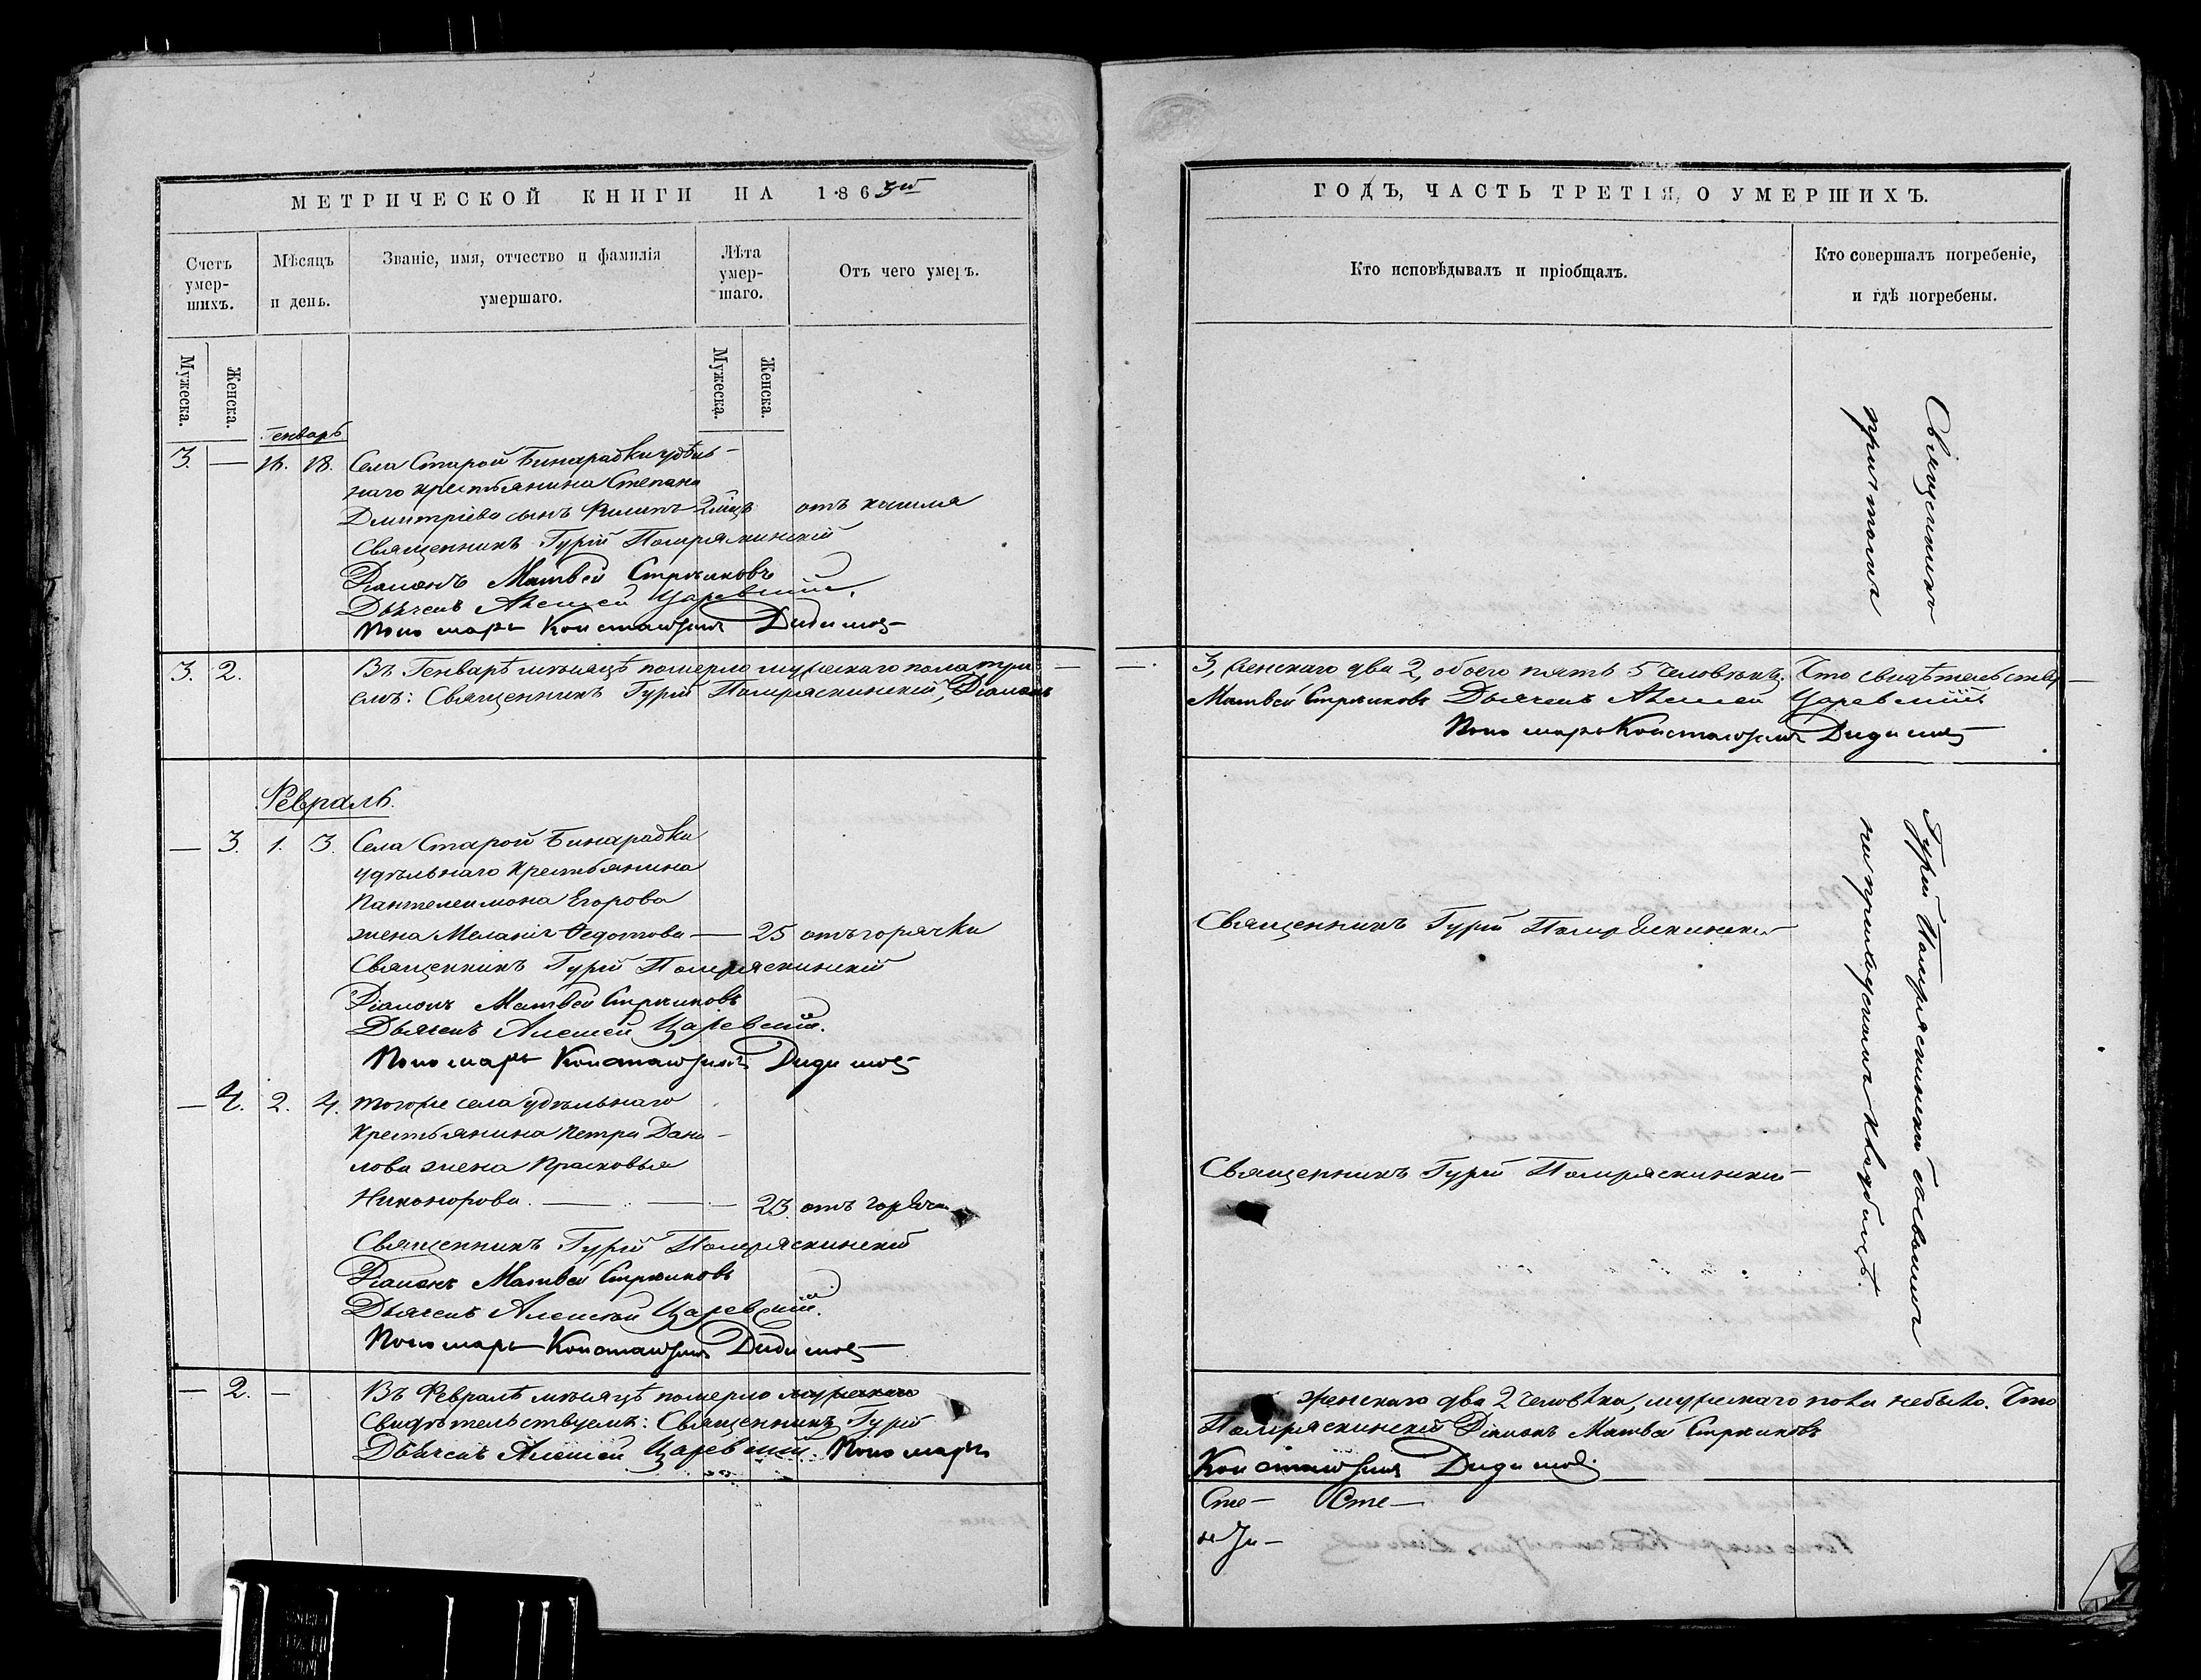 МЕТРИЧЕСКОЙ КНИГИ НА 1863й
Счетъ умер-шихъ.
Мѣсяцъ и день.
Званіе, имя, отчество и фамилія умершаго.
Лѣта умер-шаго.
Отъ чего умеръ.
Мужеска.
Женска.
Мужеска.
Женска.
Генварь
3. — 16. 18. Села Старой Бинарадки удѣль-
наго крестьянина Степана
Дмитріева сынъ Филипъ 2 мѣс. отъ кашля
Священникъ Гурій Помряскинскій
Діаконъ Матвей Стрѣжковъ
Дьячекъ Алексей Царевскій.
Пономарь Константинъ Дидимов
3. 2. Въ Генварѣ мѣсяцѣ померло мужескаго пола три
емъ: Священникъ Гурій Помряскинскій, Діаконъ
Февраль.
— 3. 1. 3. Села Старой Бинарадки
удѣльнаго крестьянина
Пантелеимона Егорова
жена Меланія Федотова — 25 отъ горячки
Священникъ Гурій Помряскинскій
Діаконъ Матвей Стрѣжковъ
Дьячекъ Алексей Царевскій.
Пономарь Константинъ Дидимов
— 4. 2. 4. Тогоже села удѣльнаго
крестьянина Петра Дани-
лова жена Прасковья
Никонорова. — 23. отъ горячки
Священникъ Гурій Помряскинскій
Діаконъ Матвей Стрѣжковъ
Дьячекъ Алексей Царевскій.
Пономарь Константинъ Дидимов
— 2. — Въ Февралѣ мѣсяцѣ померло мужескаго
Свидѣтельствуемъ: Священникъ Гурій
Дьячекъ Алексей Царевскій. Пономарь
ГОДЪ, ЧАСТЬ ТРЕТІЯ, О УМЕРШИХЪ.
Кто исповѣдывалъ и пріобщалъ.
Кто совершалъ погребеніе, и гдѣ погребены.
Священникъ
причтомъ
3, женскаго два 2, обоего пять 5 человѣкъ. Что свидѣтельству-
Матвей Стрѣжковъ Дьячекъ Алексей Царевскій.
Пономарь Константинъ Дидимов
Священникъ Гурій Помряскинскій
Священникъ Гурій Помряскинскій
Гурій Помряскинскій съ своимъ
на приходскомъ кладбищѣ.
женскаго два 2 человѣка, мужескаго пола небыло. Что
Помряскинскій Діаконъ Матвей Стрѣжковъ
Константинъ Дидимов.
Сте— Сте—